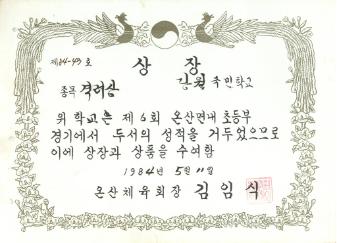 제84-43호
상장
종목 격려상
강원 국민학교
위 학교는 제6회 온산면내 초등부
경기에서 두서의 성적을 거두었으므로
이에 상장과 상품을 수여함
1984년 5월 11일
온산체육회장 김임식